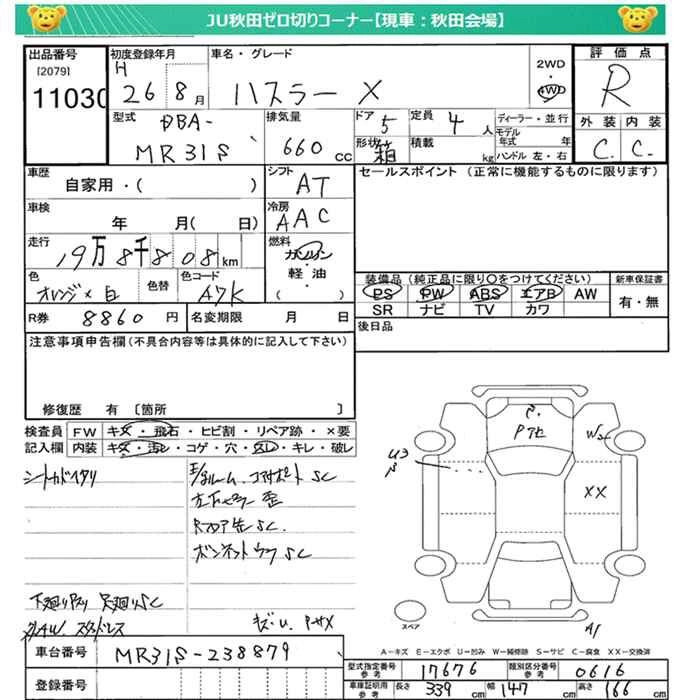 JU秋田ゼロ切りコーナー【現車：秋田会場】
出品番号 初度登録年月 車名・グレード 2WD・4WD 評価点
[2079] H
11030 26 8月 ハスラー X R
型式 排気量 ドア 5 定員 4人 ディーラー・並行 外装 内装
DBA- モデル年式 年
MR31S 660cc 形状 箱 積載 kg ハンドル 左・右 C. C.
車歴 シフト セールスポイント（正常に機能するものに限ります）
自家用・( ) AT
車検 冷房
年 月( 日) AAC
走行 燃料
19万8千808km ガソリン・軽油・( )
色 色替 色コード 装備品（純正品に限り○をつけてください） 新車保証書
オレンジ×白 A7K PS PW ABS エアB AW 有・無
SR ナビ TV カワ
R券 8860円 名変期限 月 日 後日品
注意事項申告欄(不具合内容等は具体的に記入して下さい)
修復歴 有〔箇所 〕
検査員 FW キズ・飛石・ヒビ割・リペア跡・×要
記入欄 内装 キズ・汚レ・コゲ・穴・スレ・キレ・破レ
コアサポート SC
SC.
SC
スタッドレス
U3
W2
XX
A1
スペア
A－キズ E－エクボ U－凹み W－補修跡 S－サビ C－腐食 XX－交換済
車台番号 MR31S-238879
登録番号
型式指定番号 参考 17676 類別区分番号 参考 0616
車庫証明用 参考 長さ 339cm 幅 147cm 高さ 166cm